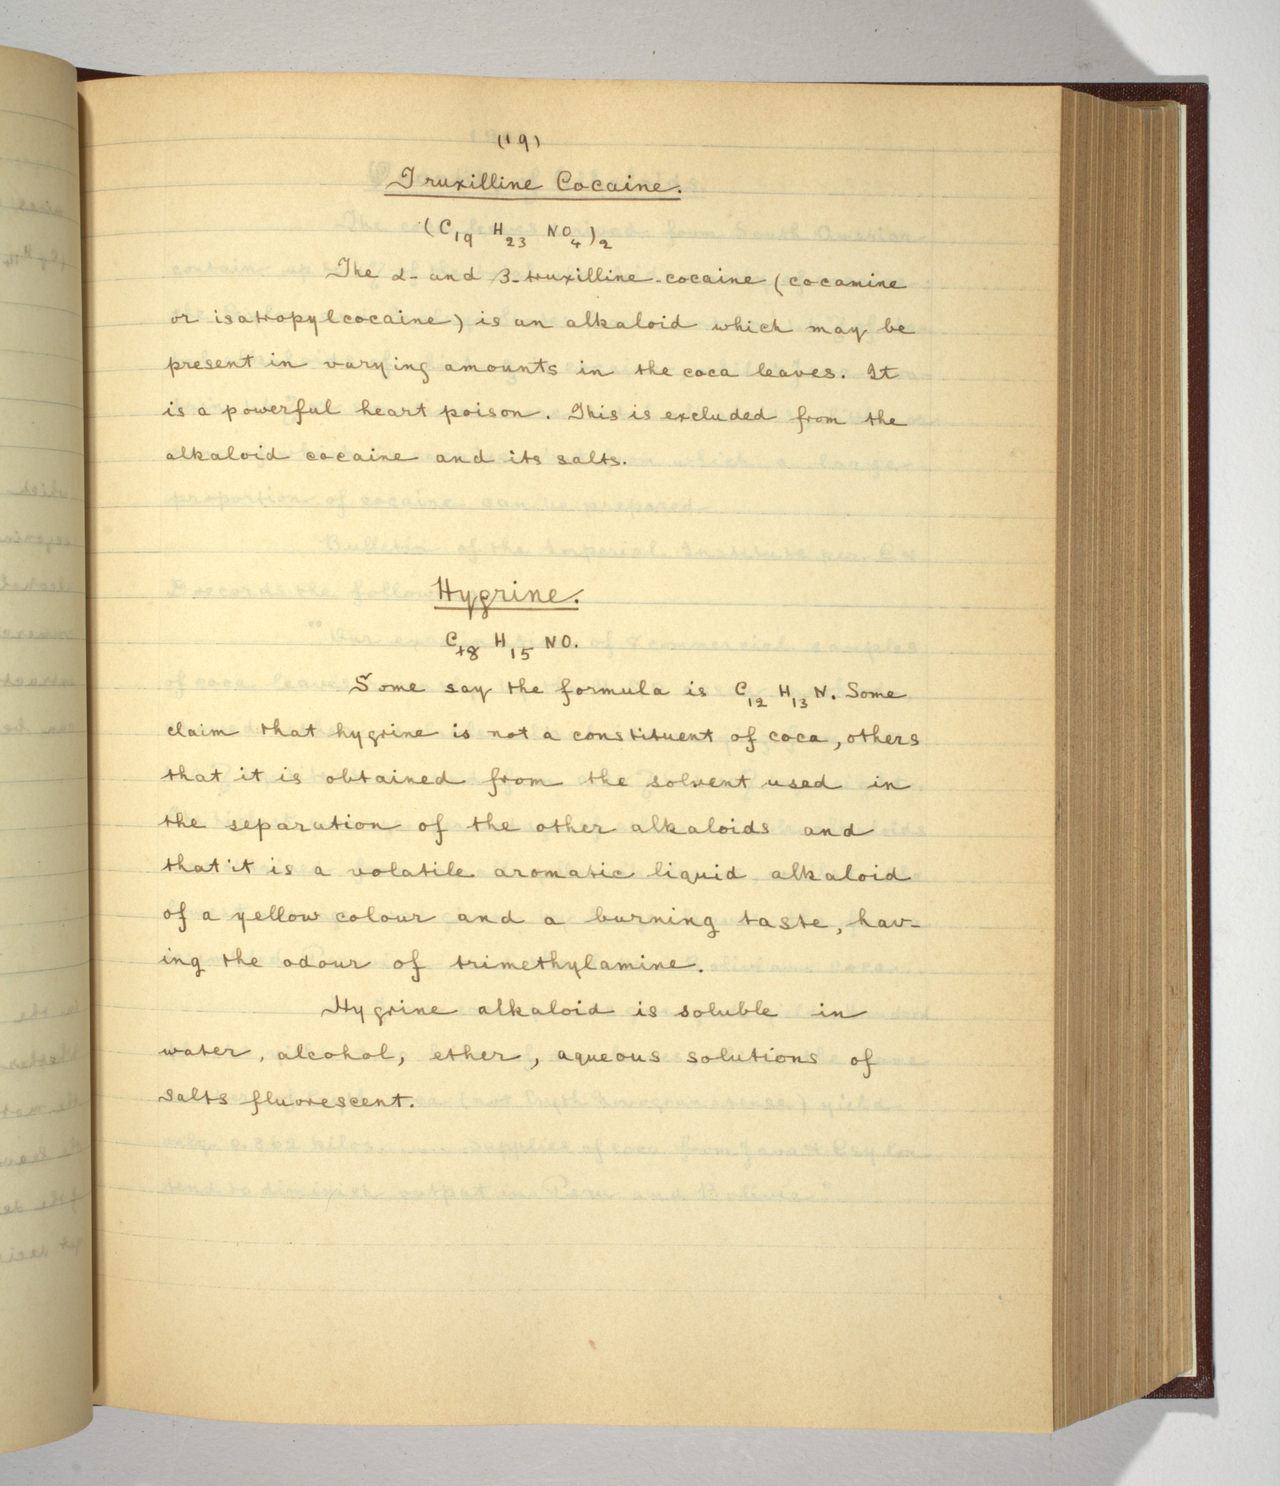 (19)
Truxilline Cocaine.
(C19 H23 NO4)2
The α- and β-truxilline-cocaine (cocamine
or isatropylcocaine) is an alkaloid which may be
present in varying amounts in the coca leaves. It
is a powerful heart poison. This is excluded from the
alkaloid cocaine and its salts.
Hygrine.
C8 H15 NO.
Some say the formula is C12 H13 N. Some
claim that hygrine is not a constituent of coca, others
that it is obtained from the solvent used in
the separation of the other alkaloids and
that it is a volatile aromatic liquid alkaloid
of a yellow colour and a burning taste, hav-
ing the odour of trimethylamine.
Hygrine alkaloid is soluble in
water, alcohol, ether, aqueous solutions of
salts fluorescent.